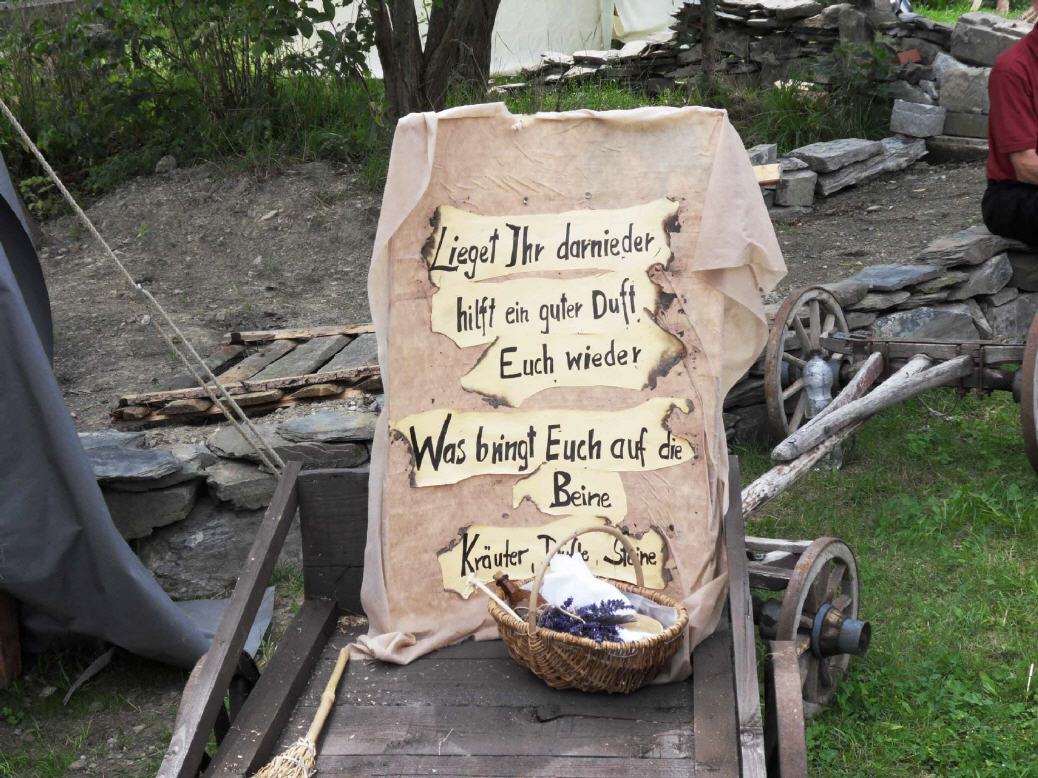 Lieget Ihr darnieder,
hilft ein guter Duft
Euch wieder
Was bringt Euch auf die
Beine
Kräuter, Steine